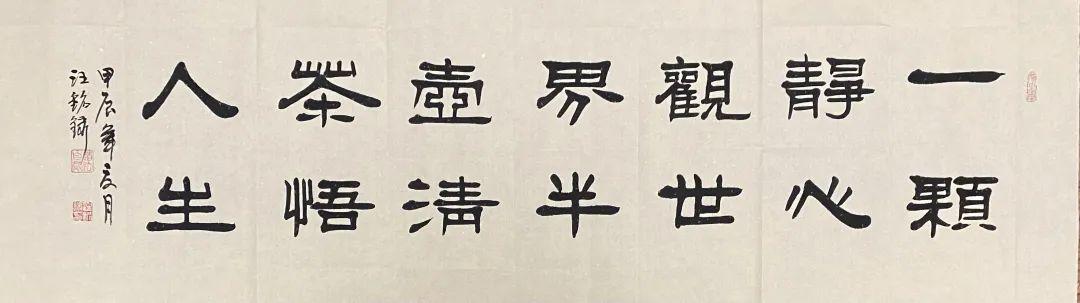 一顆
靜心
觀世
界半
壺清
茶悟
人生
甲辰年夏月
汪銘鏽